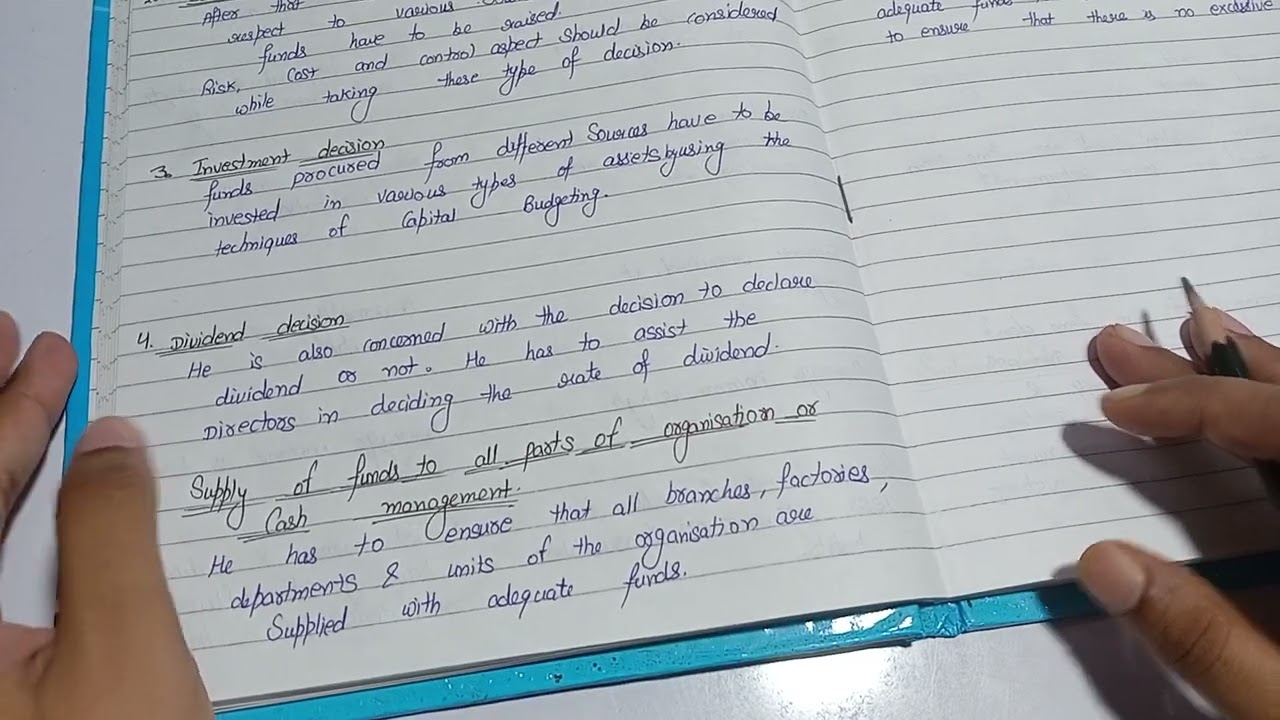 After that
respect to various
funds have to be raised.
Risk, Cost and control aspect should be considered
while taking these type of decision.
3. Investment decision
funds procured from different Sources have to be
invested in various types of assets by using the
techniques of Capital Budgeting.
4. Dividend decision
He is also concerned with the decision to declare
dividend or not. He has to assist the
Directors in deciding the rate of dividend.
Supply of funds to all parts of organisation or
Cash management.
He has to ensure that all branches, factories,
departments & units of the organisation are
Supplied with adequate funds.
adequate funds
to ensure that there is no excessive